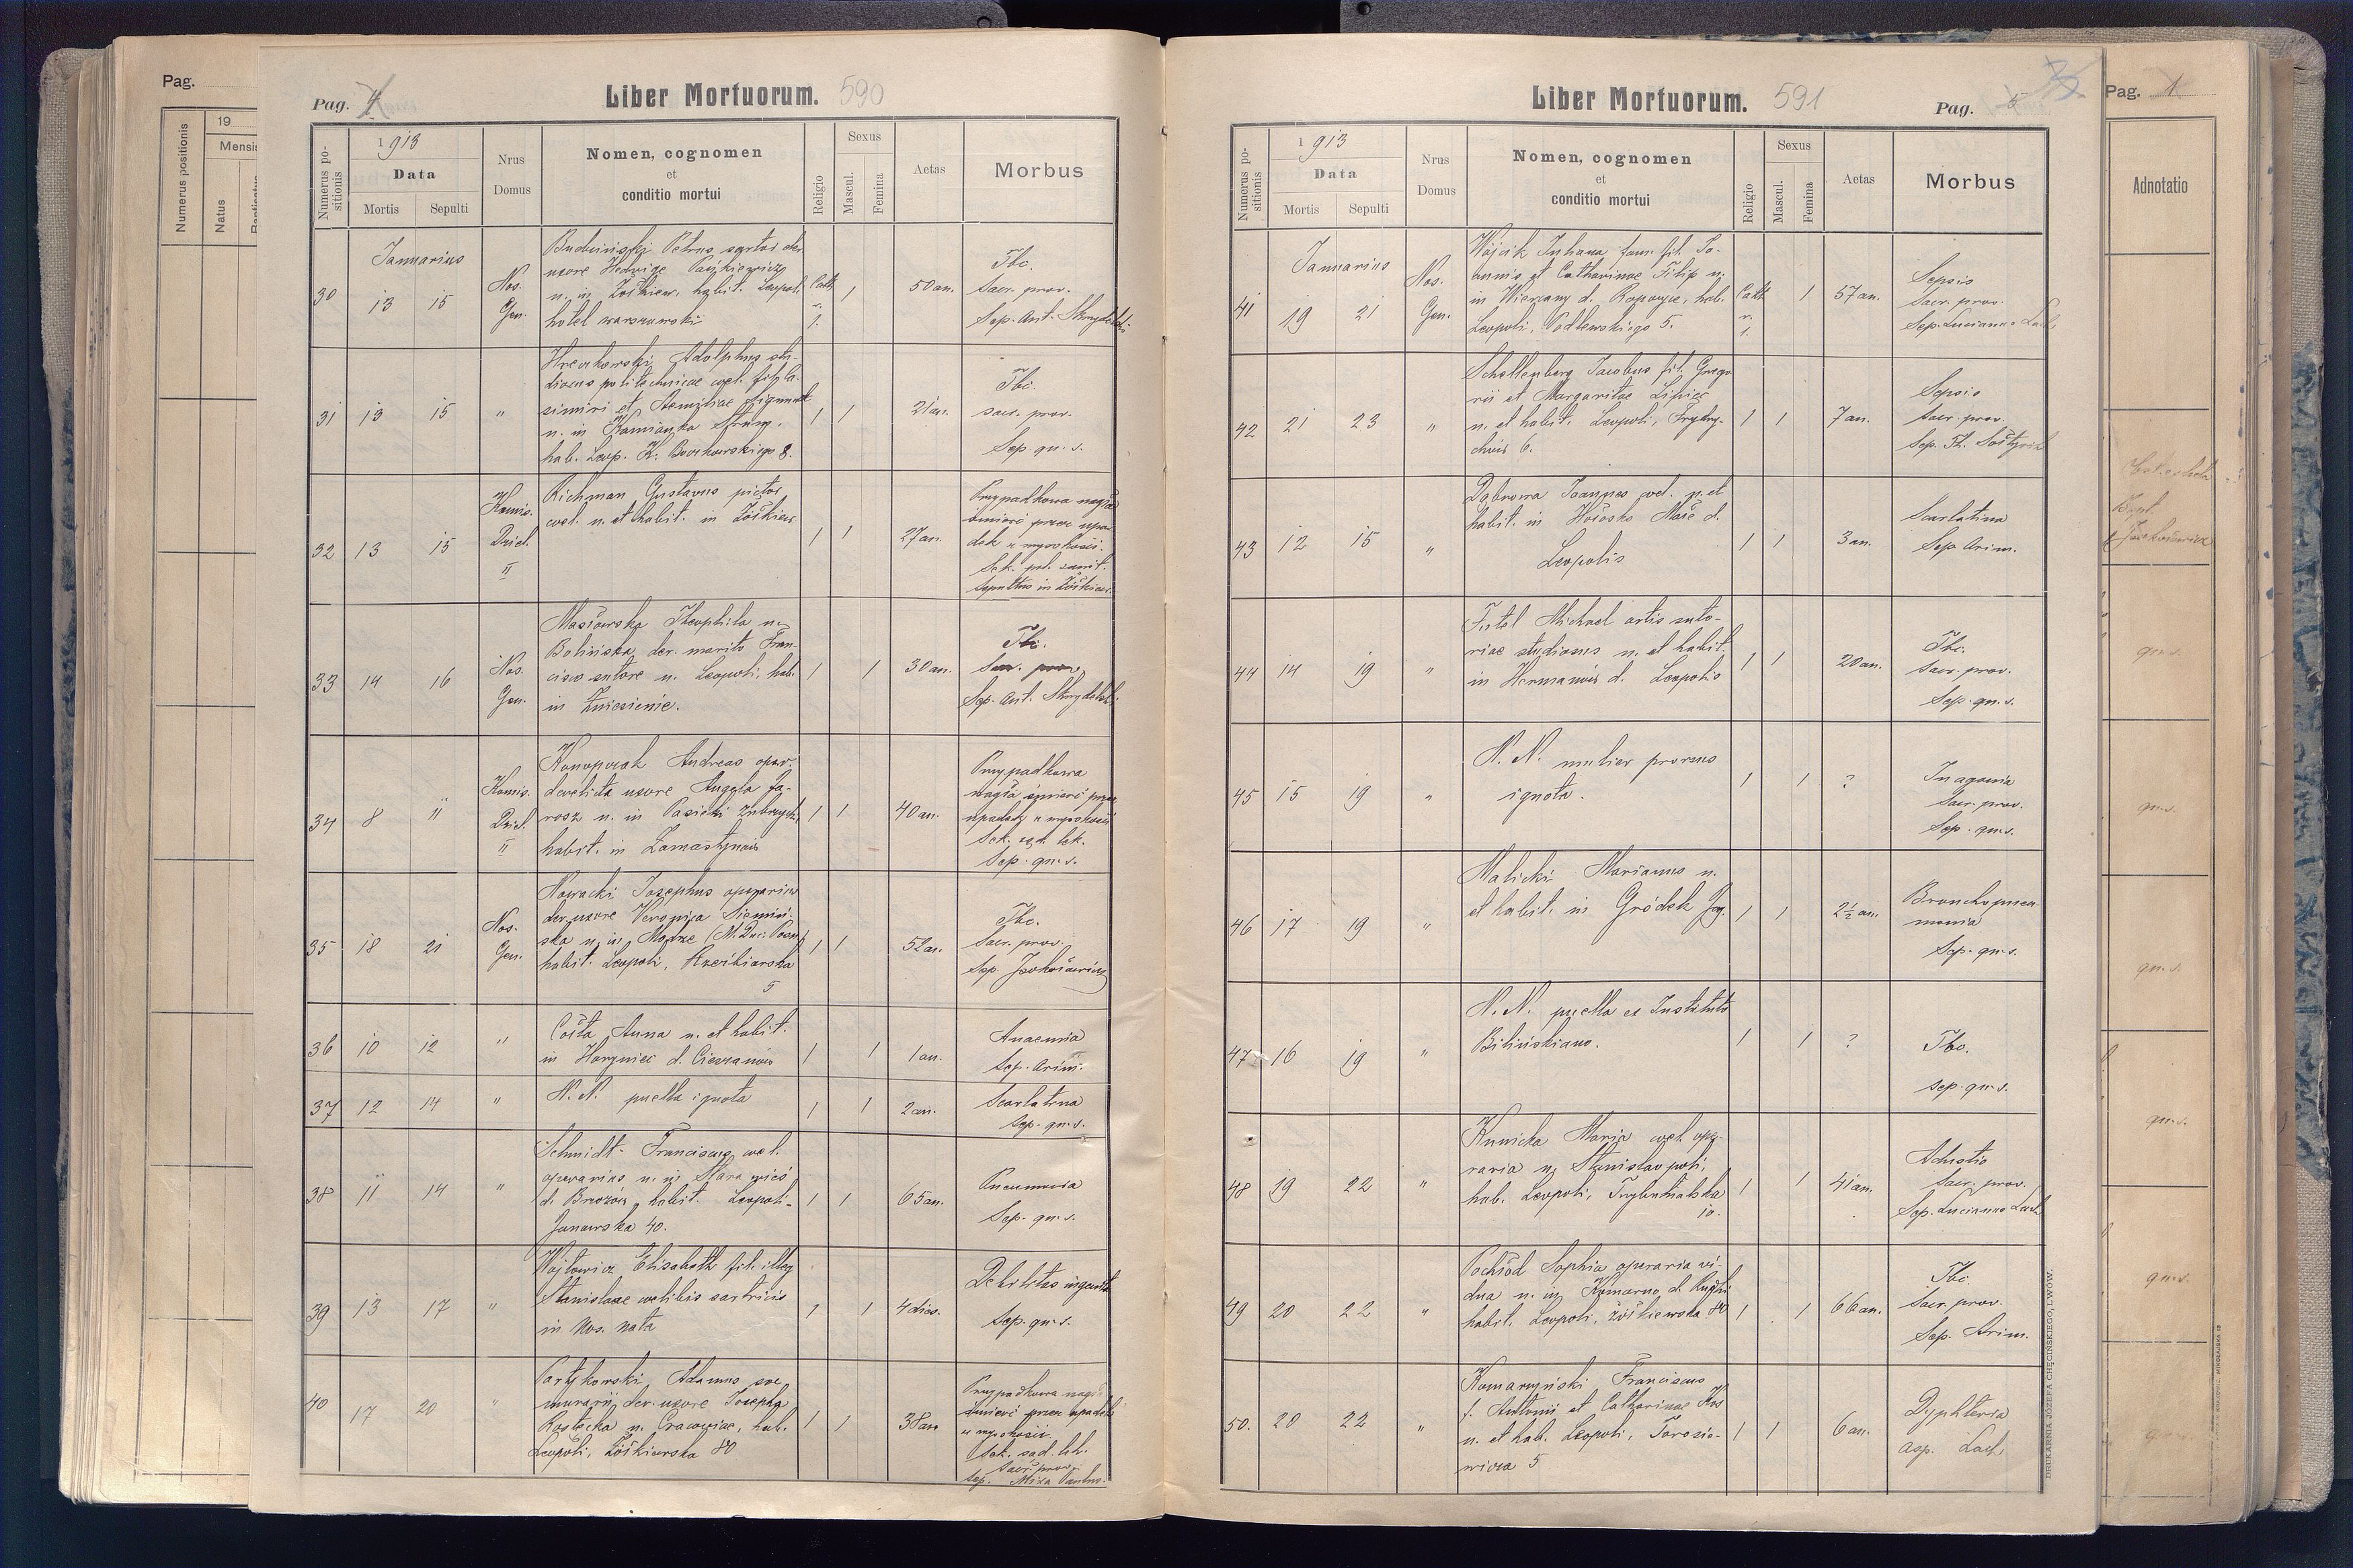 Pag.
19
Mensis
Numerus positionis
Natus
Pag. 4
Liber Mortuorum. 590
Numerus positionis
1913
Data
Mortis
Sepulti
Nrus Domus
Nomen, cognomen
et
conditio mortui
Religio
Sexus
Mascul.
Femina
Aetas
Morbus
Januarius
30 13 15
Nos. Gen.
Petrus sartor der.
uxore Hedwige Paszkiewicz
n. in Żółkiew, habit. Leopoli
hotel warszawski
Cath. r. l.
1
50 an.
Tbc.
Sacr. prov.
Sep. Ant.
31 13 15 "
Adolphus stu-
diosus politechnicae coel. fil.
simiri et Aemiliae
n. in Kamianka Strum.
hab. Leop. K. Boczkowskiego 8.
1 1
21 an.
Tbc.
sacr. prov.
Sep. qu. s.
32 13 15
Komis. Dziel. II
Richman Gustavus pictor
coel. n. et habit. in Żółkiew
1 1
27 an.
Przypadkowa nagła
śmierć przez upa-
dek z wysokości.
Sepultus in Żółkiew
33 14 16
Nos. Gen.
Theophila n.
Bolińska der. marito Fran-
cisco sutore n. Leopoli, hab.
in Zniesienie.
1 1
30 an.
Tbc.
Sacr. prov.
Sep. Ant.
34 8 11
Komis. Dziel. II
Konopczak Andreas oper.
derelicta uxore Angela Ja-
rosz n. in Pasieki Zubrzyck.
habit. in Zamarstynów
1 1
40 an.
Przypadkowa
nagła śmierć przez
upadek z wysokości
Sek. sąd. lek.
Sep. qu. s.
35 18 21
Nos. Gen.
Nowacki Josephus operarius
der. uxore Veronica Siemiń-
ska n. in Modrze (M. Duc. Posn.
habit. Leopoli, Rzeźbiarska
5
1 1
52 an.
Tbc.
Sacr. prov.
Sep.
36 10 12 "
Anna n. et habit.
in Horyniec d. Cieszanów
1 1
1 an.
Anaemia
Sep. Arim.
37 12 14 "
N. N. puella ignota
1 1
2 an.
Scarlatina
Sep. qu. s.
38 11 14 "
Schmidt Franciscus coel.
operarius n. in Stara wieś
d. Brzozów, habit. Leopoli-
Janowska 40.
1 1
65 an.
Pneumonia
Sep. qu. s.
39 13 17 "
Wójtowicz Elisabeth fil. illeg
Stanislaae coelibis sartricis
in Nos. nata
1 1
4 dies.
Debilitas ingenita
Sep. qu. s.
40 17 20 "
Partykowski Adamus soc.
murarii, der. uxore Josepha
Rostecka n. Cracoviae, hab.
Leopoli, Żółkiewska 80
1 1
38 an.
Przypadkowa nagła
śmierć przez upadek
z wysokości.
Sek. sąd. lek.
Sacr. prov.
Sep.
Liber Mortuorum. 591
Pag. 5
Numerus positionis
1913
Data
Mortis
Sepulti
Nrus Domus
Nomen, cognomen
et
conditio mortui
Religio
Sexus
Mascul.
Femina
Aetas
Morbus
Januarius
41 19 21
Nos. Gen.
Wójcik Juliana fam. fil. Jo-
annis et Catharinae Filip n.
in Wiercany d. Ropczyce, hab.
Leopoli, Podlewskiego 5.
Cath. r. l.
1
57 an.
Sepsis
Sacr. prov.
Sep. Lucianus Lach
42 21 23 "
Schellenberg Jacobus fil. Grego-
rii et Margaritae
n. et habit. Leopoli, Frydry-
chów 6.
1 1
7 an.
Sepsis
Sacr. prov.
Sep. St.
43 12 15 "
Dąbrowa Joannes coel. n. et
habit. in Hołosko Małe d.
Leopolis
1 1
3 an.
Scarlatina
Sep. Arim.
44 14 19 "
Michael artis suto-
riae studiosus n. et habit.
in Hermanów d. Leopolis
1 1
20 an.
Tbc.
Sacr. prov.
Sep. qu. s.
45 15 19 "
N. N. mulier prorsus
ignota.
1 1
?
In agonia
Sacr. prov.
Sep. qu. s.
46 17 19 "
Malicki Marianus n.
et habit. in Gródek Jag.
1 1
2½ an.
Bronchopneu-
monia
Sep. qu. s.
47 16 19 "
N. N. puella ex Instituto
Bilińskiano.
1 1
?
Tbc.
sep. qu. s.
48 19 22 "
Kunicka Maria coel. ope-
raria n. Stanislaopoli,
hab. Leopoli, Trybunalska
10.
1 1
41 an.
Adustio
Sacr. prov.
Sep. Lucianus Lach
49 20 22 "
Sophia operaria vi-
dua n. in Komarno d. Rudki
habit. Leopoli, Żółkiewska 80
1 1
66 an.
Tbc.
Sacr. prov.
Sep. Arim.
50. 20 22 "
Komarzyński Franciscus
f. Antonii et Catharinae Kos
n. et hab. Leopoli, Torosie-
wicza 5
1 1
6 an.
Dyphteria
asp. Lach
DRUKARNIA JÓZEFA CHĘCIŃSKIEGO, LWÓW.
Pag. 1
Adnotatio
qu. s.
qu. s.
qu. s.
qu. s.
qu. s.